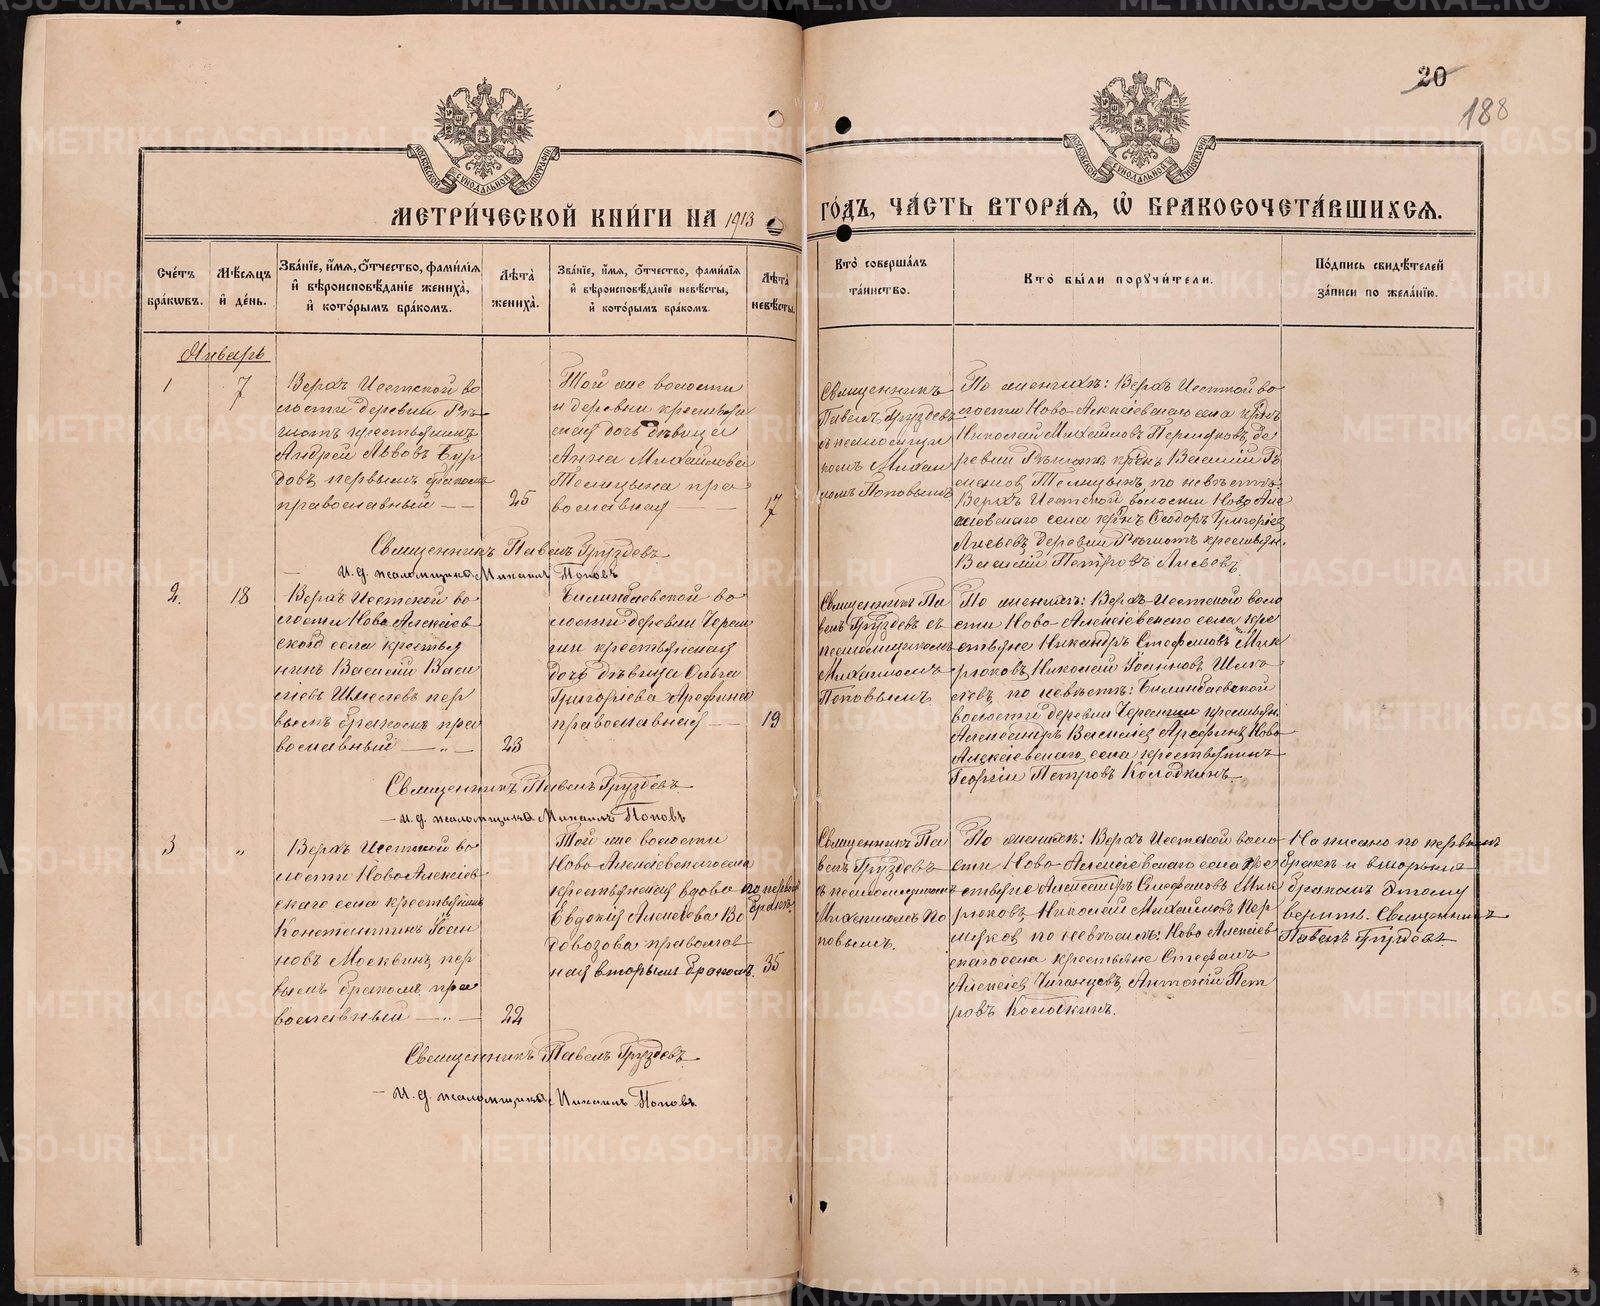 20
188
МЕТРИ́ЧЕСКОЙ КНИ́ГИ НА 1913
ГО́ДЪ, ЧА́СТЬ ВТОРА́Я, Ѡ БРАКОСОЧЕТА́ВШИХСЯ.
Сче́тъ бра́кѡвъ.
Мѣ́сяцъ и҆ де́нь.
Зва́нїе, и҆́мя, ѻ҆́тчество, фами́лїя и҆ вѣроисповѣ́данїе жениха̀, и҆ кото́рымъ бра́комъ.
Лѣта̀ жениха̀.
Зва́нїе, и҆́мя, ѻ҆́тчество, фами́лїя и҆ вѣроисповѣ́данїе невѣ́сты, и҆ кото́рымъ бра́комъ.
Лѣта̀ невѣ́сты.
Кто̀ соверша́лъ та́инство.
Кто̀ бы́ли порꙋчи́тели.
По́дпись свидѣ́телей за́писи по жела́нїю.
Январь
1
7
Верхъ Исетской во
лости деревни Рѣ
шотъ крестьянинъ
Андрей Львовъ Бур
довъ первымъ бракомъ
православный
25
Той же волости
и деревни крестьян
ская дочь дѣвица
Анна Михайлова
Телицына пра
вославная
17
Священникъ
Павелъ Груздевъ
съ псаломщи
комъ Михаи
ломъ Поповымъ
По женихѣ: Верхъ Исетской во
лости Ново-Алексѣевскаго села крнъ
Николай Михайловъ Пермяковъ, де
ревни Рѣшотъ крнъ Василій
Телицынъ, по невѣстѣ:
Верхъ Исетской волости Ново Але
ксѣевскаго села крнъ Ѳеодоръ Григорьев
деревни Рѣшотъ крестьян.
Василій Петровъ
Священникъ Павелъ Груздевъ
И. д. псаломщика Михаилъ Поповъ
2.
18
Верхъ Исетской во
лости Ново Алексѣев
ской села крестья
нинъ Василій Васи
льевъ Шмелевъ пер
вымъ бракомъ пра
вославный
23
Билимбаевской во
лости деревни Череш
ши крестьянская
дочь дѣвица Ольга
Григорьева Арефина
православная
19
Священникъ Па
велъ Груздевъ съ
псаломщикомъ
Михаиломъ
Поповымъ
По женихѣ: Верхъ-Исетской воло
сти Ново-Алексѣевскаго села кре
стьяне Никандръ Стефановъ Мик
рюковъ, Николай Іоанновъ
по невѣстѣ: Билимбаевской
волости деревни крестьян.
Александръ Васильев Арефинъ, Ново
Алексѣевскаго села крестьянинъ
Георгій Петровъ Колодкинъ.
Священникъ Павелъ Груздевъ
И. д. псаломщика Михаилъ Поповъ
3
„
Верхъ Исетской во
лости Ново Алексѣев
скаго села крестьянинъ
Константинъ Іоан
новъ Москвинъ, пер
вымъ бракомъ, пра
вославный
22
Той же волости
Ново-Алексѣевскаго села
крестьянская вдова по первом
бракѣ
Евдокія Алексѣева Во
довозова православ
ная вторымъ бракомъ.
35
Священникъ Па
велъ Груздевъ
съ псаломщикомъ
Михаиломъ По
повымъ.
По женихѣ: Верхъ Исетской воло
сти Ново-Алексѣевскаго села кре
стьяне Александръ Стефановъ Мик
рюковъ, Николай Михайловъ Пер
мяков, по невѣстѣ: Ново Алексѣев
скаго села крестьяне Стефанъ
Алексѣев Чиганцовъ, Антоній Пет
ровъ Колодкинъ.
Написано по первымъ
бракѣ и вторымъ
бракомъ этому
верить. Священникъ
Павелъ Груздевъ
Священникъ Павелъ Груздевъ
И. д. псаломщика Михаилъ Поповъ
METRIKI.GASO-URAL.RU